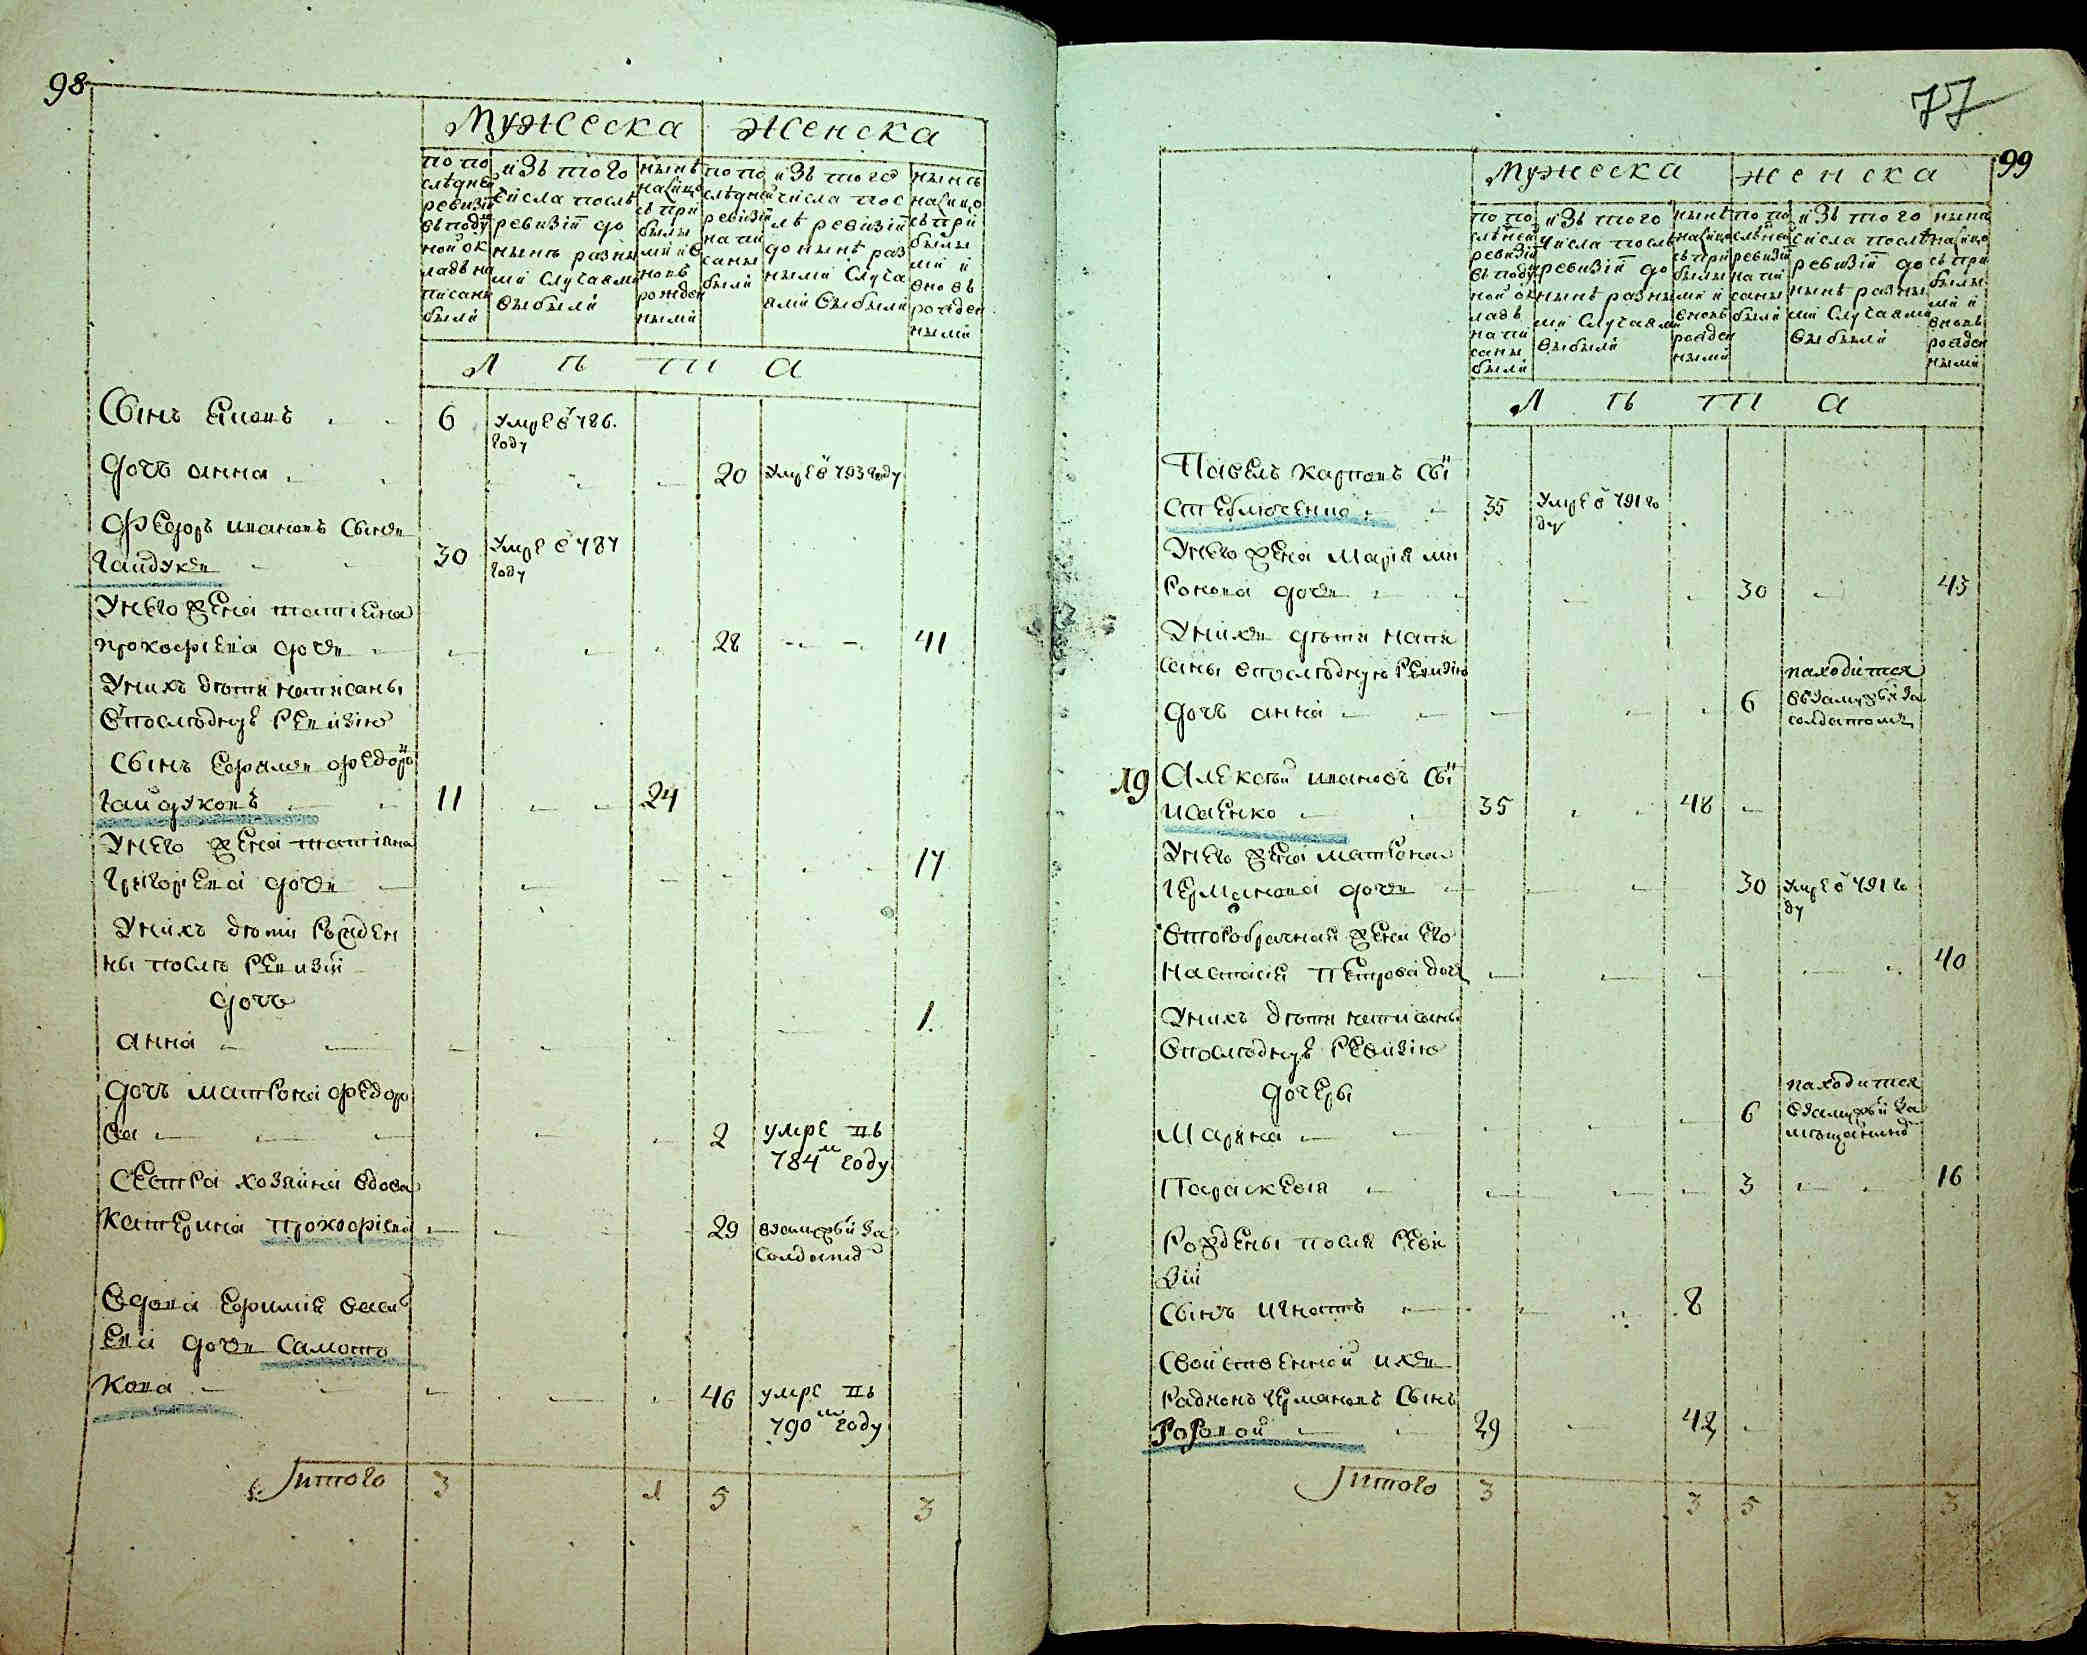 98
Мужеска Женска
по по
слѣдне
ревизіи
въ поду
ной ок
ладъ на
писаны
были
изъ того
числа послѣ
ревизіи до
нынѣ разны
ми случаями
выбыли
нынѣ
налицо
съ при
былы
ми и в
новь
рожден
ными
по по
слѣдней
ревизіи
напи
саны
были
изъ того
числа пос
лѣ ревизіи
до нынѣ раз
ными случа
ями выбыли
нынѣ
налицо
съ при
былы
ми и
вновь
рожден
ными
Л ѣ т а
Сынъ 6 умре въ 786.
году
дочь анна 20 умре въ 793 году
Федоръ ивановъ сынъ
Гайдукъ 30 умре в 787
году
У него жена татiана
прокофiева дочь 28 41
У нихъ дѣти написаны
в последнуъ ревизiю
сынъ федоро
Гайдуковъ 11 24
У него жена татiана
Григорiева дочь 17
У нихъ дѣти рожден
ны после ревизiи
дочь
анна 1.
дочь матрона федоро
ва 2 умре въ
784м году
Сестра хозяина вдова
катерина прокофiева 29 взамужъи за
солдатъ
Вдова ефимiя васил
ева дочь Самот
кова 46 умре въ
790м году
Итого 3 1 5 3
77
99
Мужеска Женска
по по
слѣдней
ревизіи
въ поду
ной ок
ладъ
напи
саны
были
изъ того
числа послѣ
ревизіи до
нынѣ разны
ми случаями
выбыли
нынѣ
налицо
съ при
былы
ми и
вновь
рожден
ными
по по
слѣдней
ревизіи
напи
саны
были
изъ того
числа послѣ
ревизіи до
нынѣ разны
ми случаями
выбыли
нынѣ
налицо
съ при
былы
ми и
вновь
рожден
ными
Л ѣ т а
Павелъ карповъ сы
35 умре в 791 го
ду
У него жена марiя ми
ронова дочь 30 43
У нихъ дѣти напи
саны в последную ревизiю
дочь анна 6 находится
взамужъи за
солдатомъ
19 Алексѣй ивановъ сы
исаенко 35 48
У него жена матрона
германова дочь 30 умре в 791 го
ду
Второбрачная жена его
настасiя петрова дочь 40
У нихъ дѣти написаны
в последнуъ ревизiю
дочеры
Марина 6 находится
взамужъи за
мѣщанинъ
Параскевiя 3 16
рождены после реви
зiи
сынъ игнатъ 8
Свойственной ихъ
радионъ германовъ сынъ
29 42
Итого 3 3 5 3